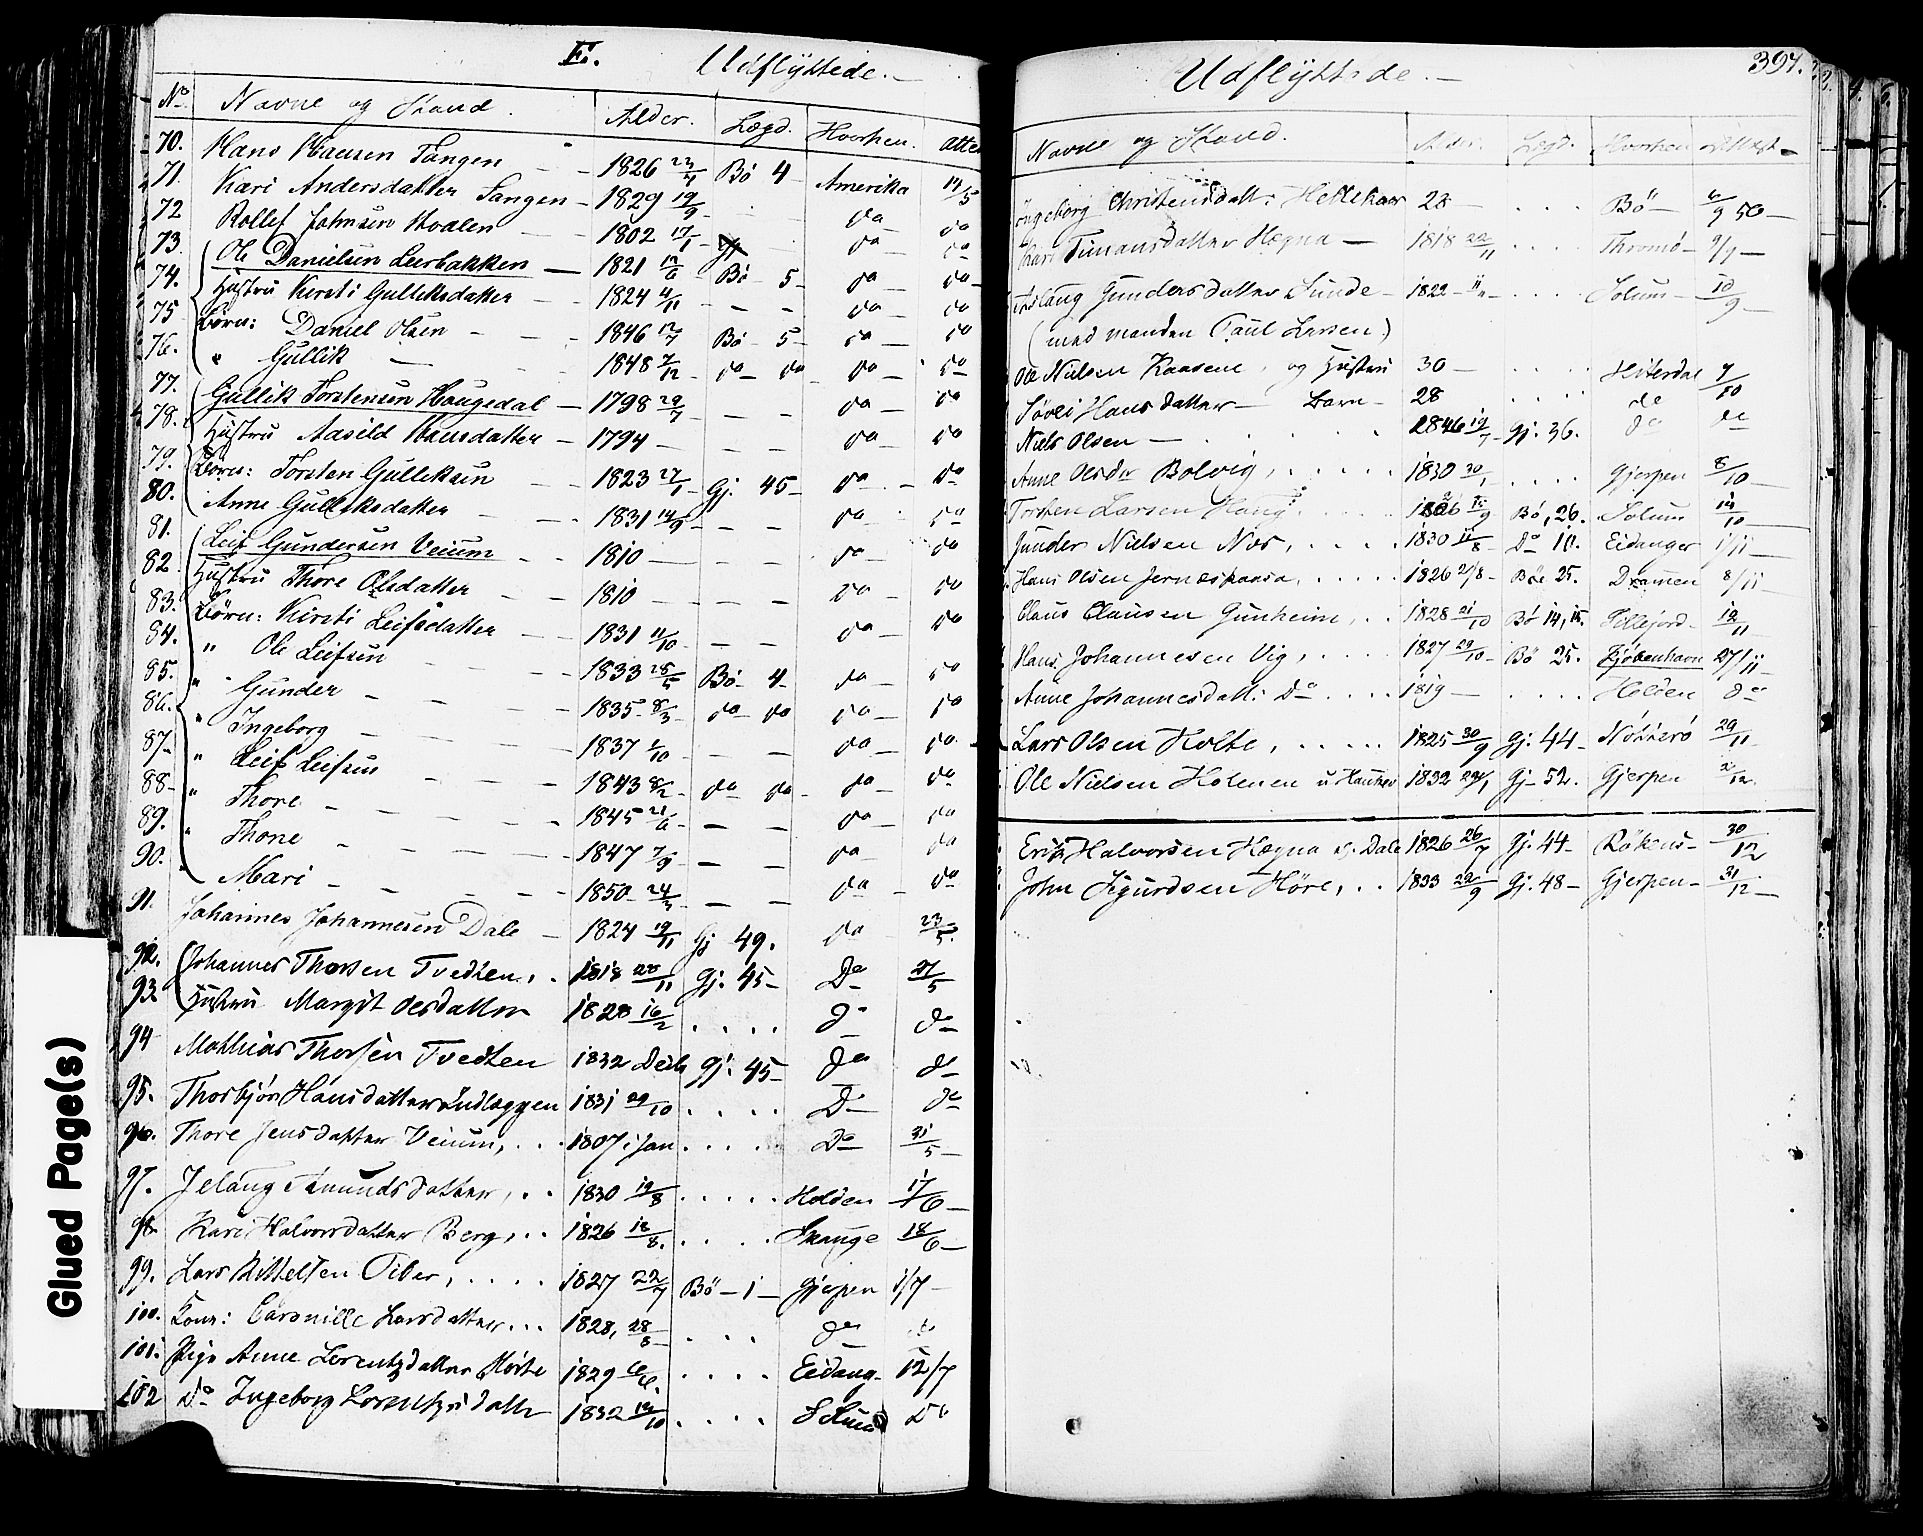 E. Udflyttede.
No Navne og Stand. Alder. Lægd. Hvorhen. Atte
70. Hans Hansen Tangen 1826 23/4 Bø 4 Amerika 14/5
71. Kari Andersdatter Tangen 1829 19/9 do do
72 Rollef Johnsen Moalen 1802 17/1 do do
73. Ole Danielsen Leerbakken 1821 Bø 5 do do
74. Hustru Kirsti Gulliksdatter 1824 4/11 do do
75 Børn: Daniel Olsen 1846 12/7 Bø 5 do do
76. " Gullik 1848 7/12 do do do do
77. Gullik Torstensen Haugedal 1798 29/7 do do
78. Hustru Aasild Hansdatter 1794 do do
79. Børn: Torsten Gulliksen 1823 27/1 Gj. 45 do do
80. Anne Gulliksdatter 1831 14/9 do do
81. Leif Gundersen Veium 1810 do do
82. Hustru Thore Olsdatter 1810 do do
83. Børn: Kirsti Leifsdatter 1831 11/10 do do
84. " Ole Leifsen 1833 Bø 4 do do
85. " Gunder 1835 8/3 do do do do
86. " Ingeborg 1837 1/10 do do
87. " Leif Leifsen 1843 8/2 do do do do
88. " Thore 1845 21/6 do do
89. " Thone 1847 7/9 do do
90. Mari 1850 24/3 do do
91. Johannes Johannesen Dale 1824 19/11 Gj 49. do 23/5.
92. Johannes Thorsen Tvedten, 1818 20/11 Gj. 45 Do 27/5
93. Hustru Margit Olsdatter 1828 16/2 do do
94 Mathias Thorsen Tvedten 1832 Decb Gj. 45 do do
95. Thorbjør Hansdatter 1831 29/10 Do do
96. Thore Jensdatter Veium, 1807 i Jan Do 31/5
97. Jelaug Amundsdatter, 1830 19/8 Holden 17/6
98. Kari Halvorsdatter Berg, 1826 12/8. 18/6
99. Lars Kittelsen 1827 22/7 Bø 1 Gjerpen 1/7
100. Kone: Larsdatter 1828, 28/8 do do
101. Pige Anne Lorentzdatter 1829 Eidang. 12/7
102 Do Ingeborg Lorentzdatter 1832 12/10 Do
Udflyttede. 397.
Navne og Stand. Alder. Lægd. Hvorhen Attest
Ingeborg Christensdatt: Hellekaas 28 Bø 6/9 50
Kari Timansdatter Hægna 1818 22/11 Thromø 9/9
Aslaug Gundersdatter Sunde 1822 Solum 10/9
(med manden Paul Larsen)
Ole Nielsen Kaasene, og Hustru 30 Hiterdal 7/10
Søvei Hansdatter Barn 28 do do
Niels Olsen 1846 19/7 Gj. 36. do do
Anne Olsdr Bolvig, 1830 30/1 Gjerpen 8/10
Torsten Larsen Haug, 1826 Bø, 26. Solum 14/10
Gunder Nielsen Nor, 1830 11/8 Do 10. Eidanger 1/11
Hans Olsen 1826 21/8 Bø 25. Dramen 8/11
Claus Clausen Gunheim, 1828 21/10 Bø 14, 15. Tillejord 12/11
Hans Johannesen Vig, 1827 29/10 Bø 25. Kjøbenhavn 27/11
Anne Johannesdatt: Do 1819 Holden do
Lars Olsen Holte, 1825 30/9 Gj. 44 Nøtterø 29/11
Ole Nielsen Holmen 1832 Gj 52. Gjerpen 2/12.
Erik Halvorsen Hægna Dale 1826 26/7 Gj. 44 Røkens 30/12
John Sigurdsen Høre, 1833 22/9 Gj. 48 Gjerpen 31/12
Glued Page(s)